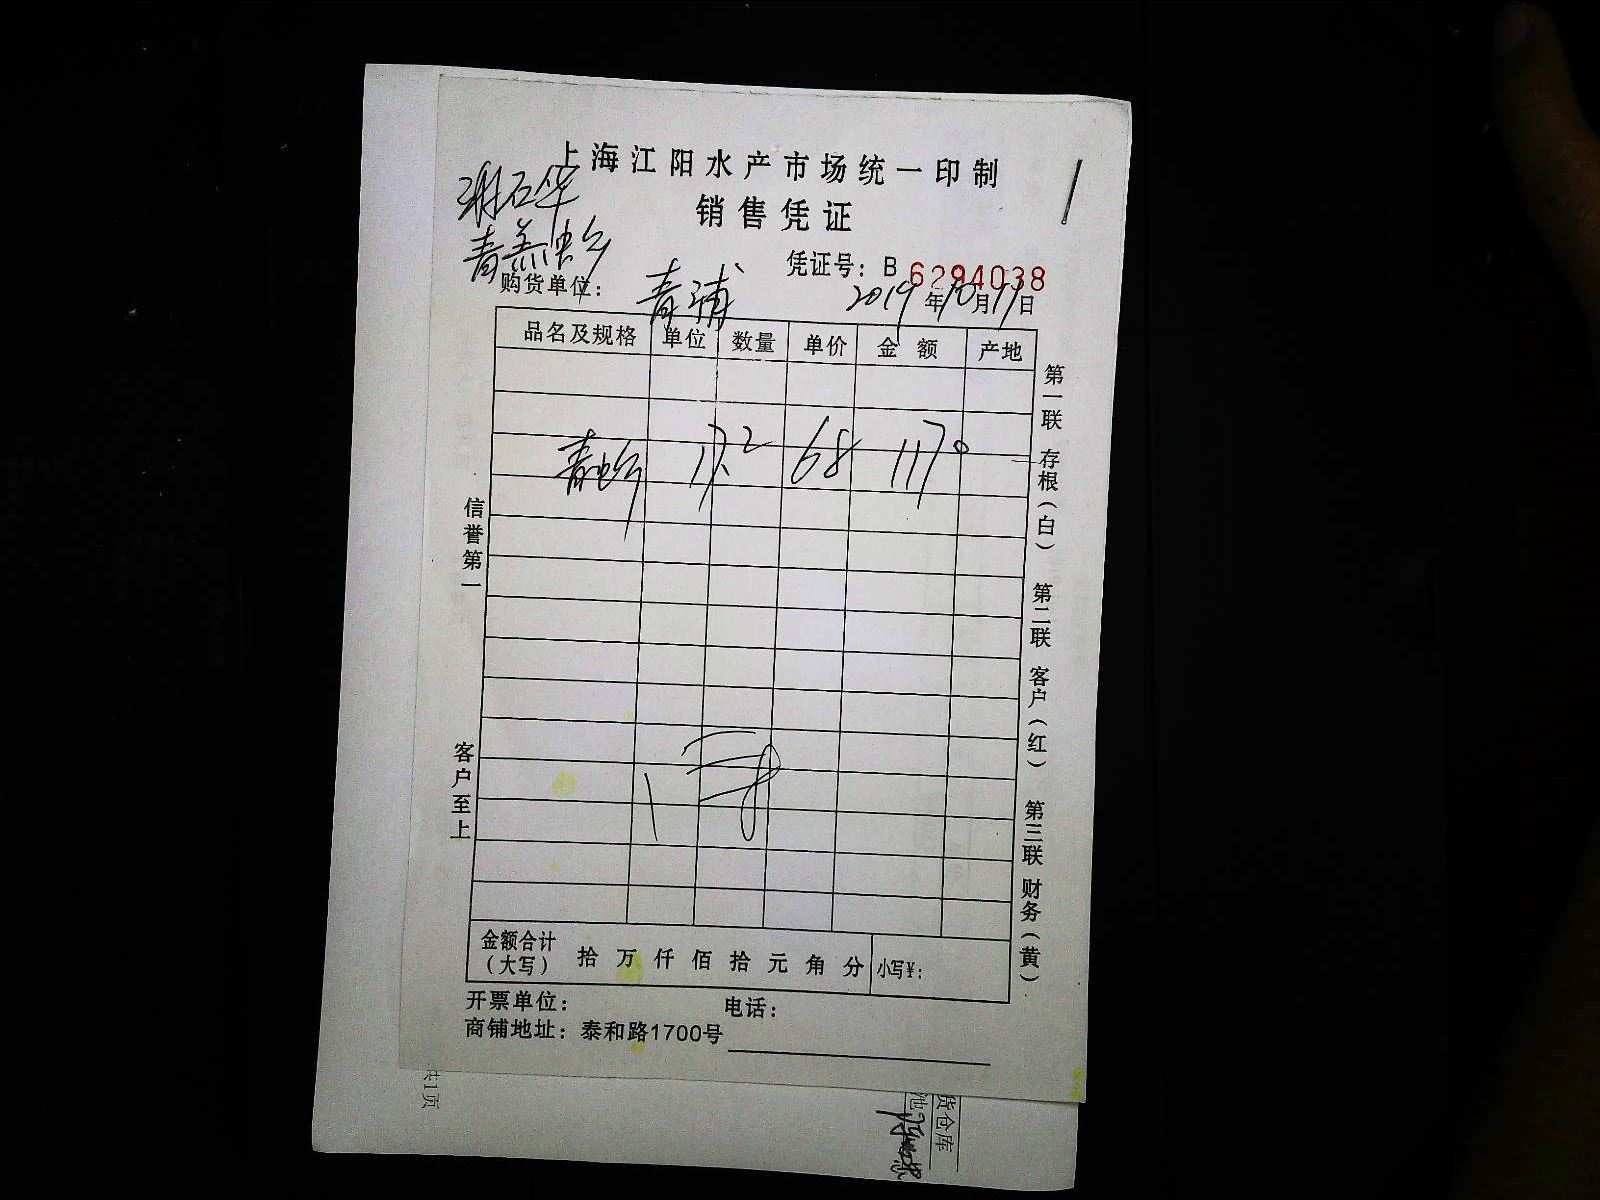 上海江阳水产市场统一印制
销售凭证
谢石华
凭证号：B 6294038
购货单位： 青浦 2019年10月17日
品名及规格 单位 数量 单价 金额 产地
17.2 68 1170
信誉第一
客户至上
第一联 存根（白） 第二联 客户（红） 第三联 财务（黄）
金额合计（大写） 拾 万 仟 佰 拾 元 角 分 小写¥：
开票单位： 电话：
商铺地址：泰和路1700号
共1页
货仓库